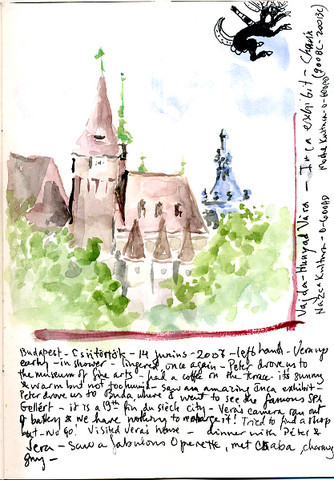 Budapest - Csütörtök - 14 junius - 2007 - left hands - Vera
early - in shower - lingered once again - Peter drove us to
the museum of fine arts - had a coffee on the terrace - its sunny
& warm but not too humid - saw an amazing Inca exhibit -
Peter drove us to Buda where I went to see the famous SPA
Gellért - it is a 19th fin du siècle city - Vera's camera ran out
of battery & we have nothing to it! Tried to find a shop
but - No Go! Visited Vera's house - dinner with Peter &
Vera - saw a fabulous Operette, met Csaba
Vajda-Hunyad Vára - Inca exhibit - Chavin
(900BC - 200BC)
Nazca kultura - 0-600AD